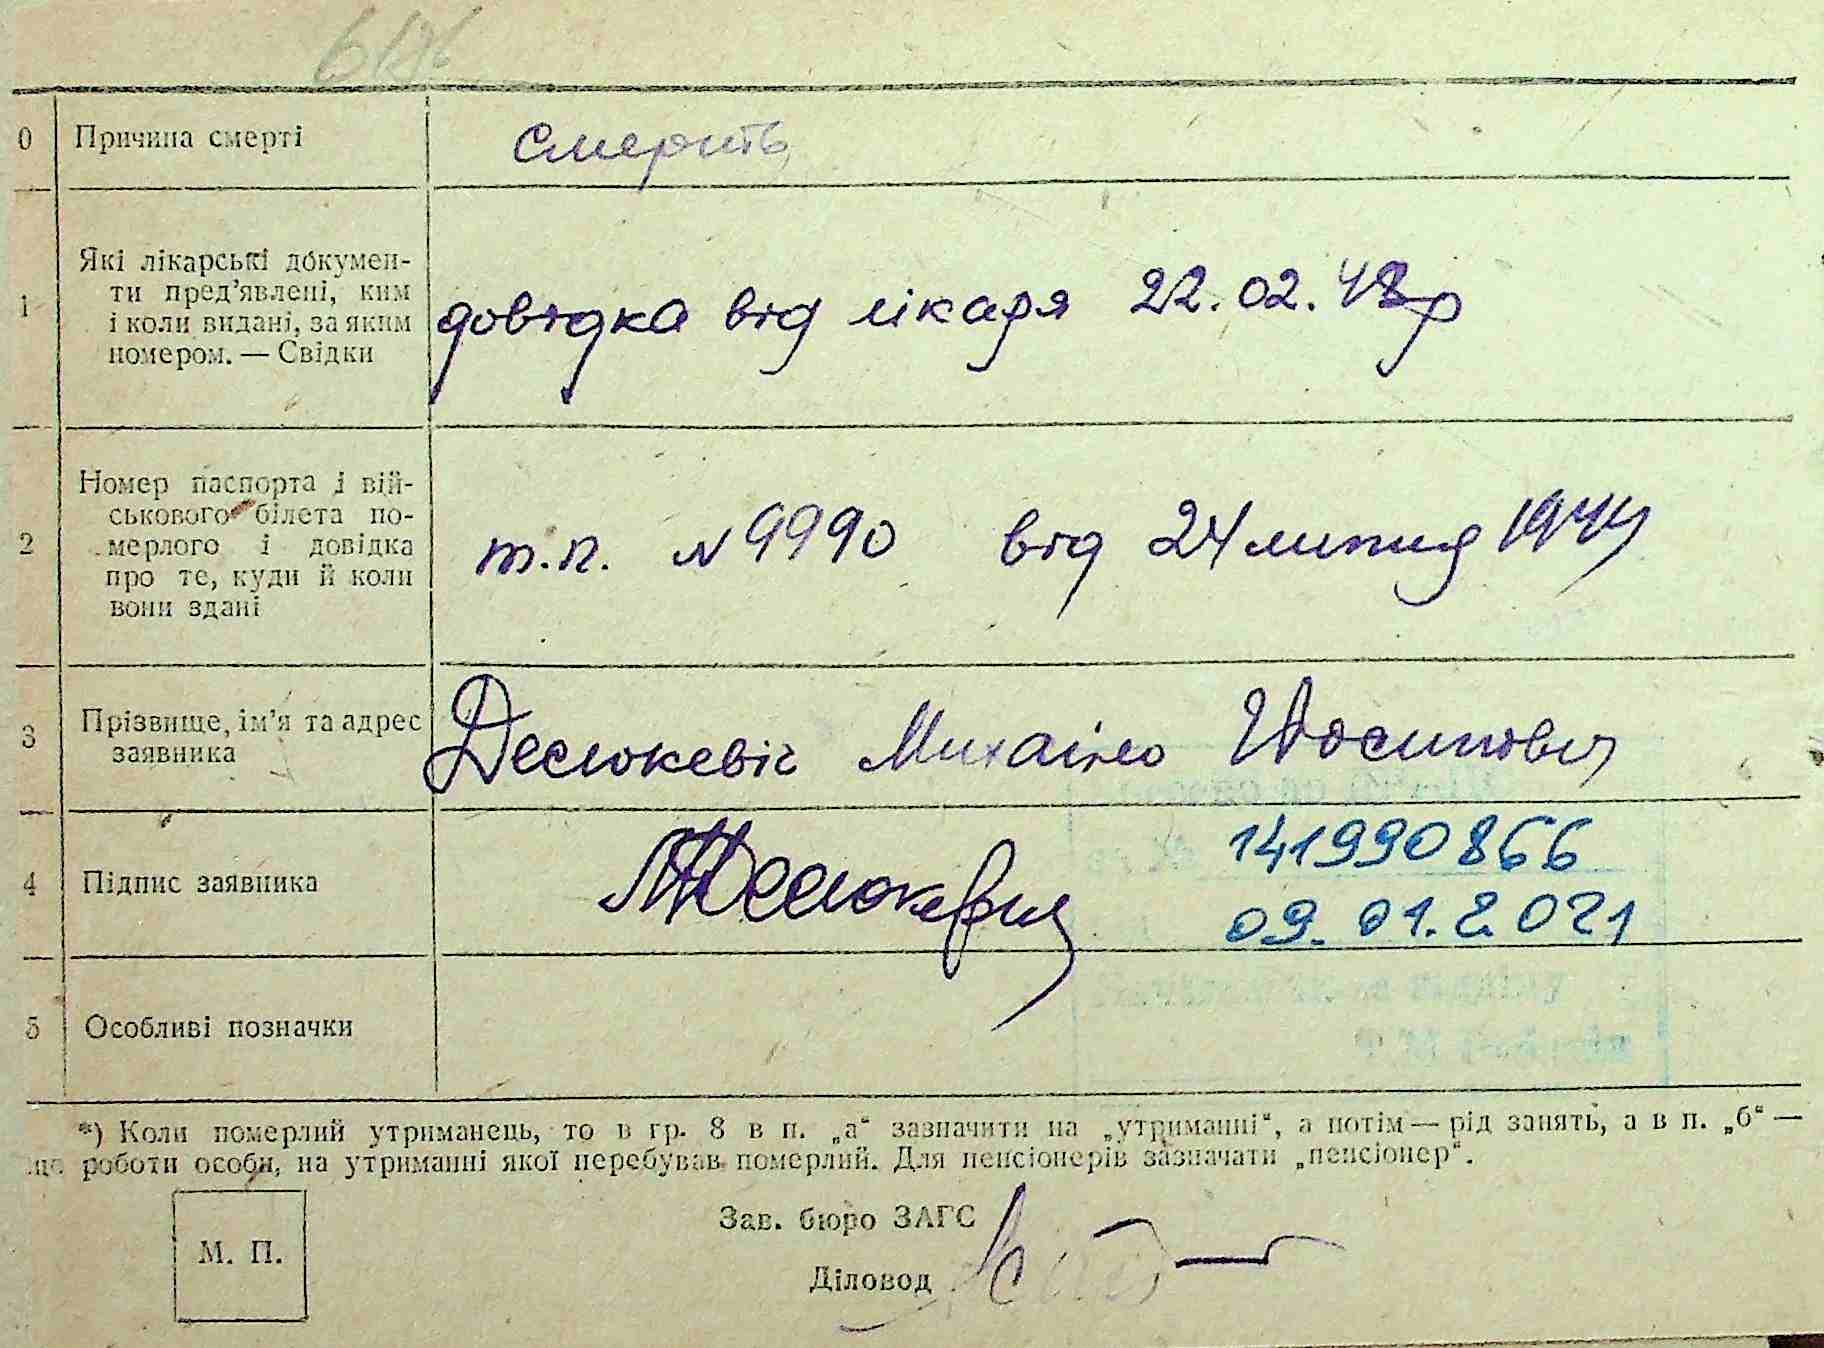 0 Причина смерті смерить
Які лікарські докумен-
ти пред’явлені, ким
1 і коли видані, за яким довідка від лікаря 22.02.48р
номером. — Свідки
Номер паспорта і вій-
ськового білета по-
2 мерлого і довідка т.п. № 9990 від 24 липня 1944
про те, куди й коли
вони здані
3 Прізвище, ім’я та адрес Деслюкевіч Михайло Йосипович
заявника
141990866
4 Підпис заявника
09.01.2021
5 Особливі позначки
*) Коли померлий утриманець, то в гр. 8 в п. „а“ зазначити на „утриманні“, а потім — рід занять, а в п. „б“ —
роботи особи, на утриманні якої перебував померлий. Для пенсіонерів зазначати „пенсіонер“.
Зав. бюро ЗАГС
М. П.
Діловод